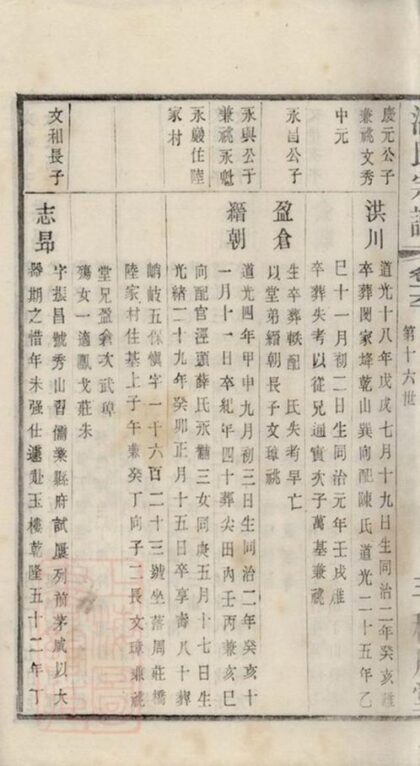 第十六世
慶元公子
兼祧文秀
中元
洪川
道光十八年戊戌七月十九日生同治二年癸亥
卒葬閔家埄乾山巽向配陳氏道光二十五年乙
巳十一月初二日生同治元年壬戌
卒葬失考以從兄通寅次子萬基兼祧
永昌公子
盈倉
生卒葬軼配 氏失考早亡
以堂弟縉朝長子文璋祧
永興公子
兼祧永魁
永嚴住陸
家村
縉朝
道光四年甲申九月初三日生同治二年癸亥十
一月十一日卒年四十葬尖田內壬丙兼亥巳
向配官涇頭薛氏永 三女同庚五月十七日生
光緒二十九年癸卯正月十五日卒享壽八十葬
峭岐五保慎字一千六百二十三號坐落周莊橋
陸家村住基上子午兼癸丁向子二長文璋兼祧
堂兄盈倉次武璋
殤女一適鳳戈莊朱
文和長子
志昂
字張昌號秀山習儒業縣府試屢列前茅咸以大
器期之惜年未强仕遽赴玉樓乾隆五十二年丁